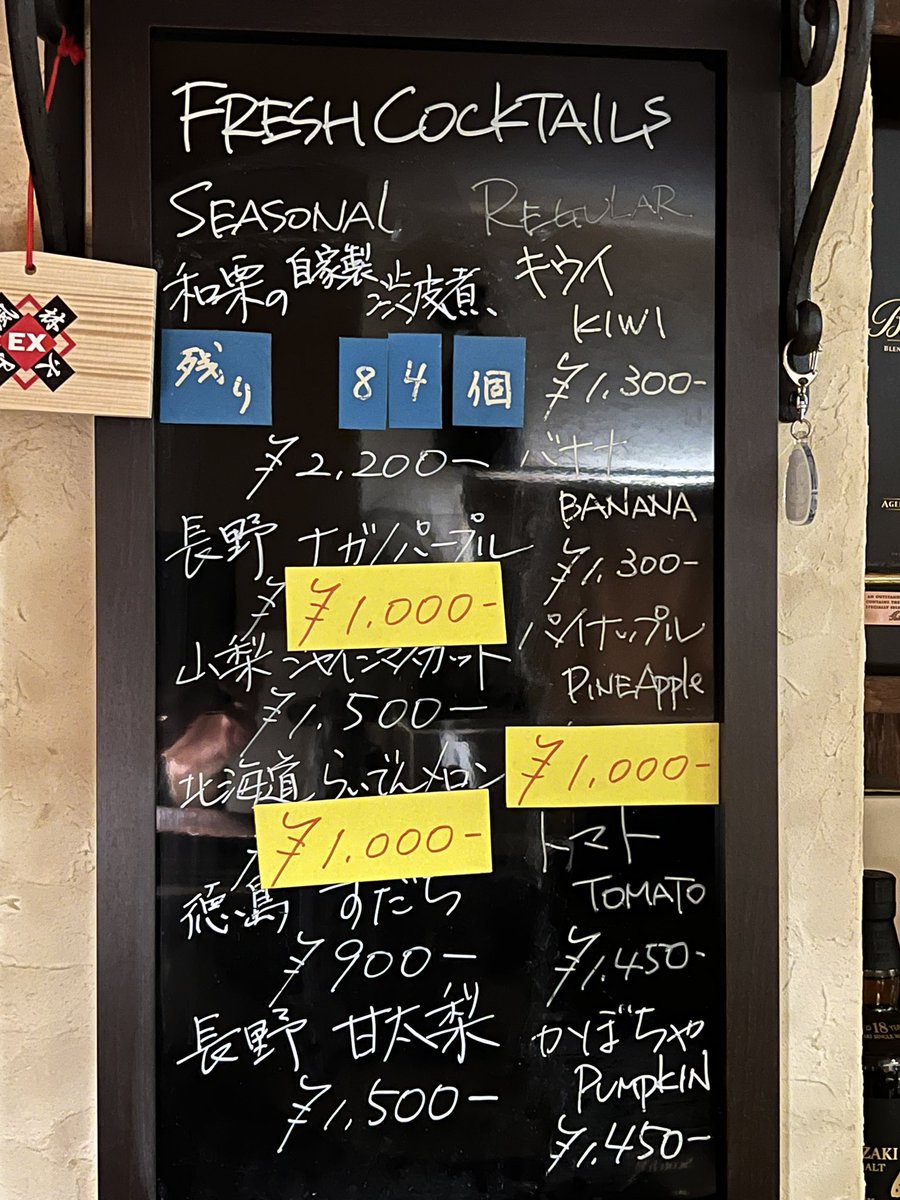 FRESH COCKTAILS
SEASONAL
和栗の自家製渋皮煮
残り 84個
¥2,200-
長野 ナガノパープル
¥1.000-
山梨 シャインマスカット
¥1,500-
北海道 らいでんメロン
¥1.000-
徳島 すだち
¥900-
長野 甘太梨
¥1,500-
REGULAR
キウイ
KIWI
¥1.300-
バナナ
BANANA
¥1.300-
パイナップル
PINEApple
¥1.000-
トマト
TOMATO
¥1.450-
かぼちゃ
PUMPKIN
¥1.450-
EX
18